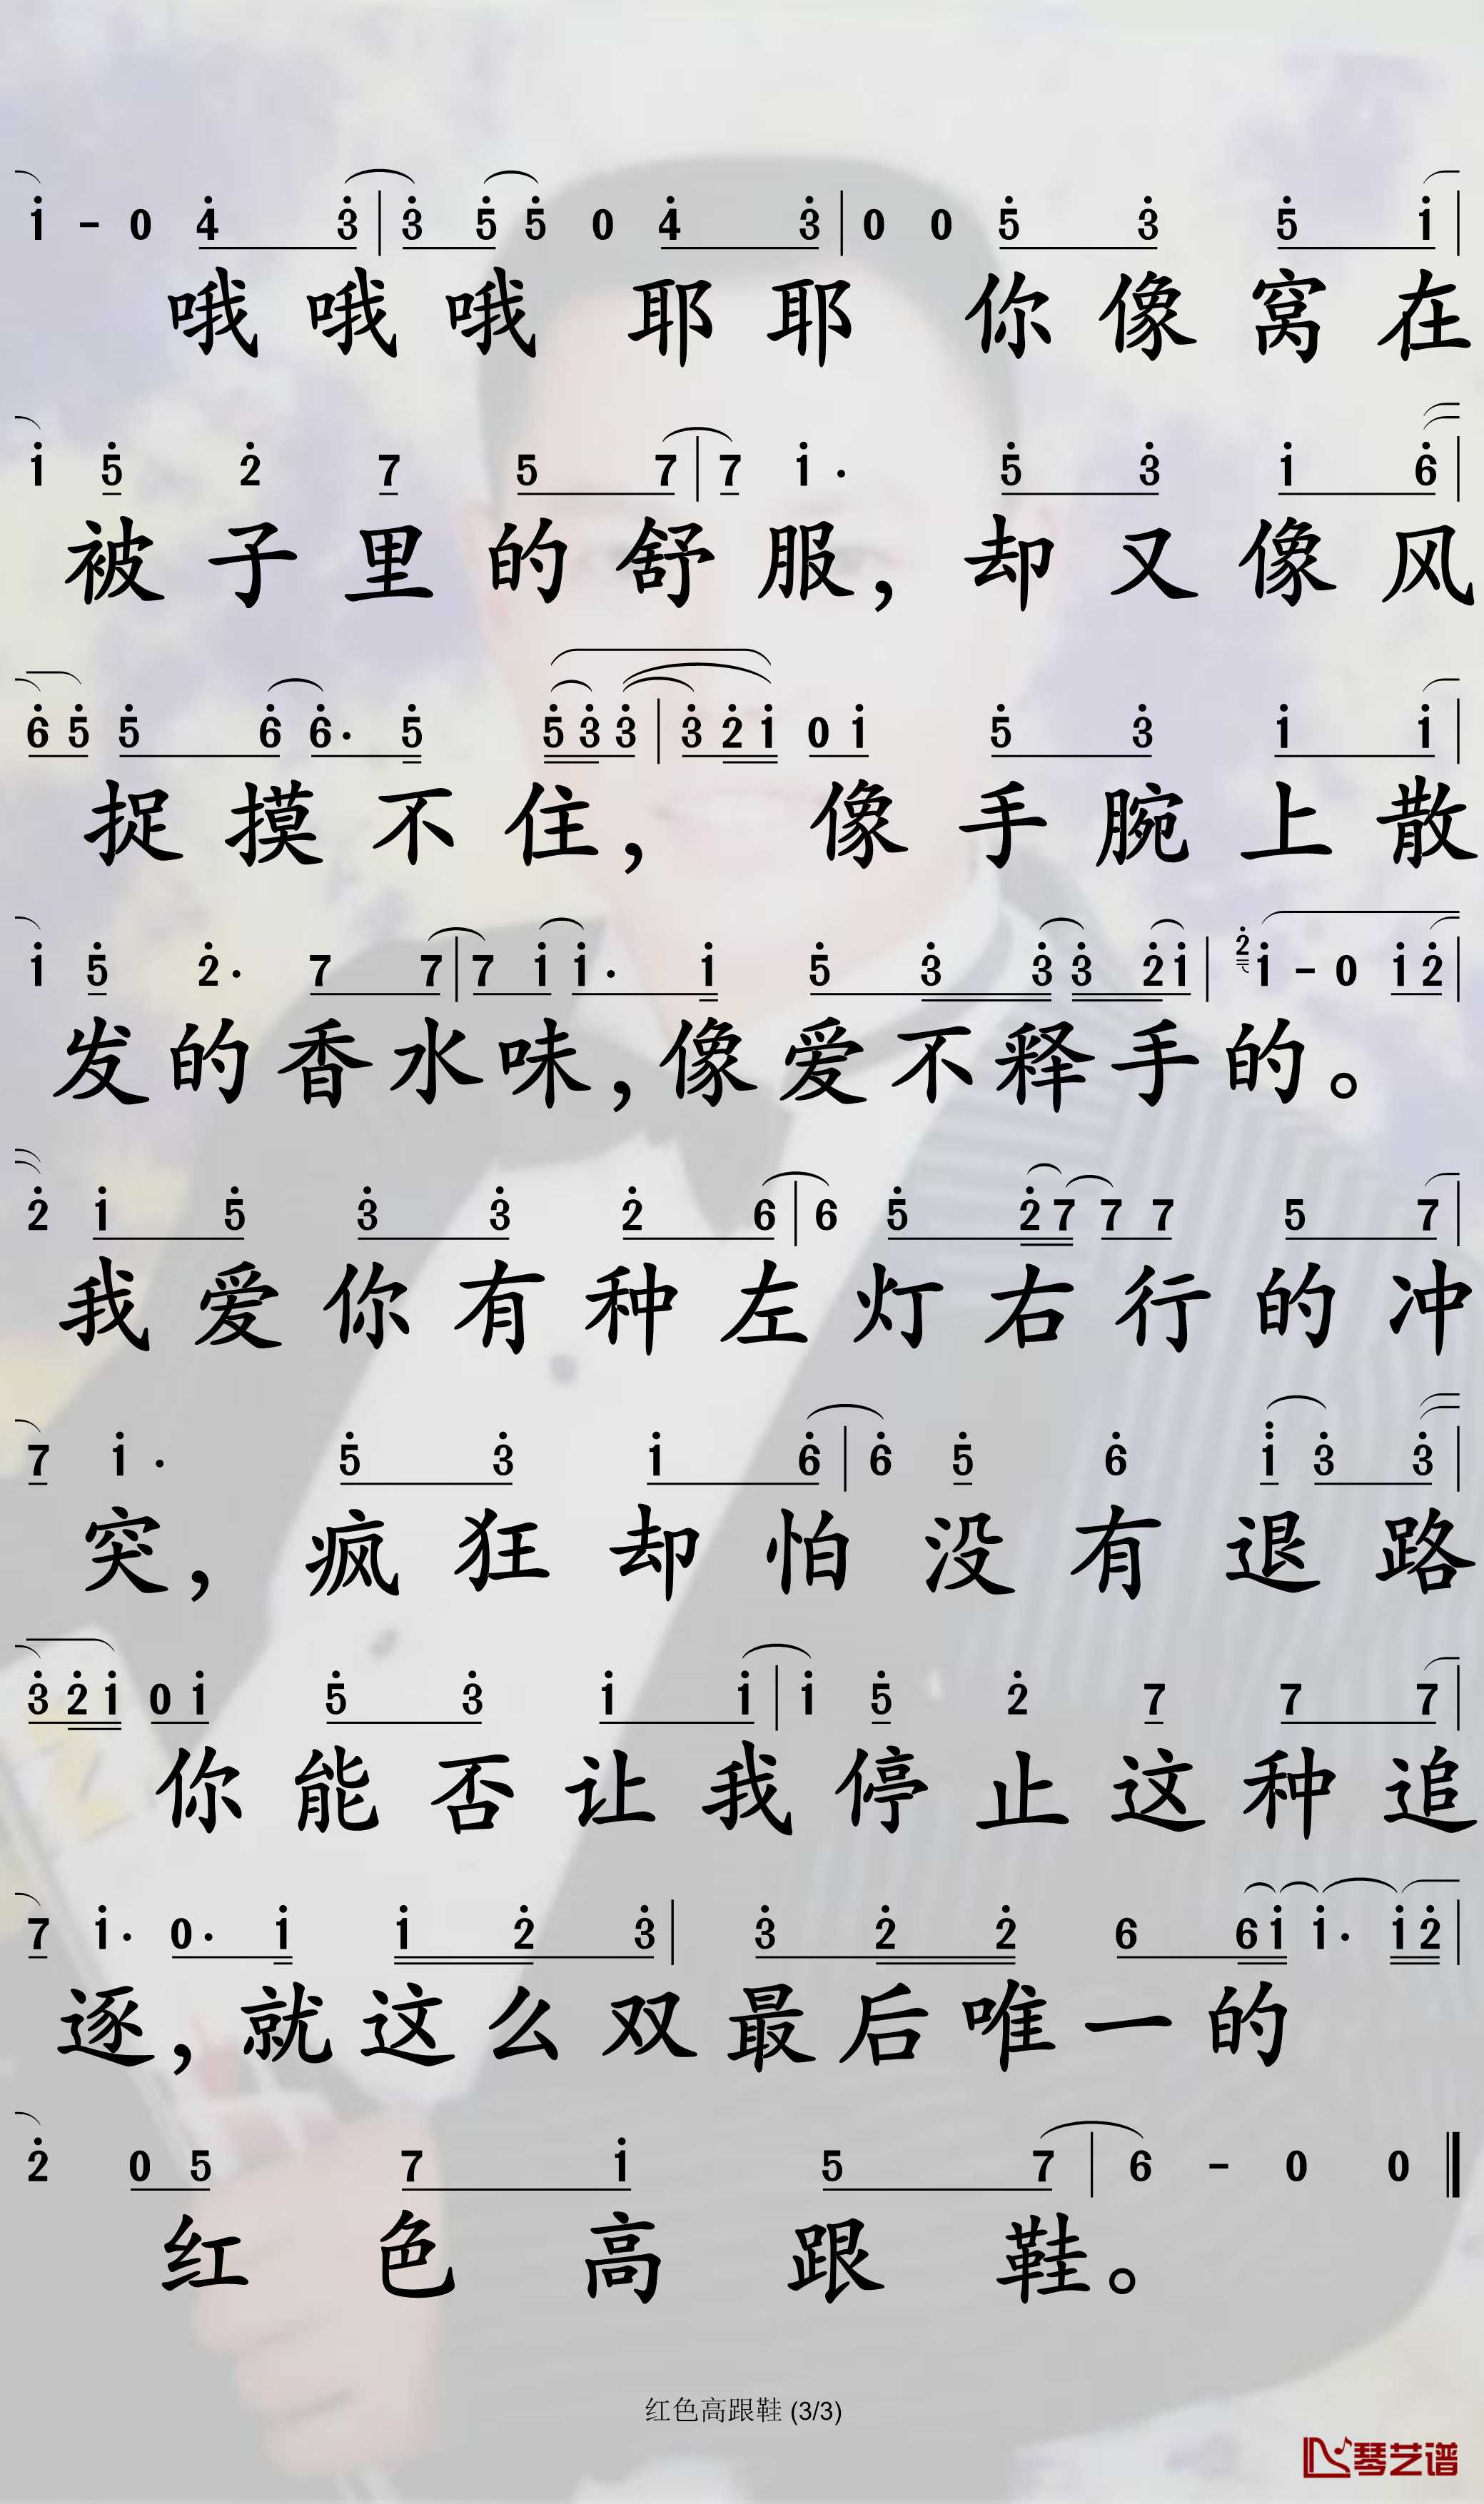 i - 0 4 3 | 3 5 5 0 4 3 | 0 0 5 3 5 i |
哦 哦 哦 耶 耶 你 像 窝 在
i 5 2 7 5 7 | 7 i · 5 3 i 6 |
被 子 里 的 舒 服， 却 又 像 风
6 5 5 6 6· 5 5 3 3 | 3 2 i 0 i 5 3 i i |
捉 摸 不 住， 像 手 腕 上 散
i 5 2· 7 7 | 7 i i· i 5 3 3 3 2 i | 2 i - 0 i 2 |
发 的 香 水 味，像 爱 不 释 手 的。
2 i 5 3 3 2 6 | 6 5 2 7 7 7 5 7 |
我 爱 你 有 种 左 灯 右 行 的 冲
7 i · 5 3 i 6 | 6 5 6 i 3 3 |
突， 疯 狂 却 怕 没 有 退 路
3 2 i 0 i 5 3 i i | i 5 2 7 7 7 |
你 能 否 让 我 停 止 这 种 追
7 i· 0· i i 2 3 | 3 2 2 6 6 i i· i 2 |
逐，就 这 么 双 最 后 唯 一 的
2 0 5 7 i 5 7 | 6 - 0 0
红 色 高 跟 鞋。
红色高跟鞋 (3/3)
琴艺谱